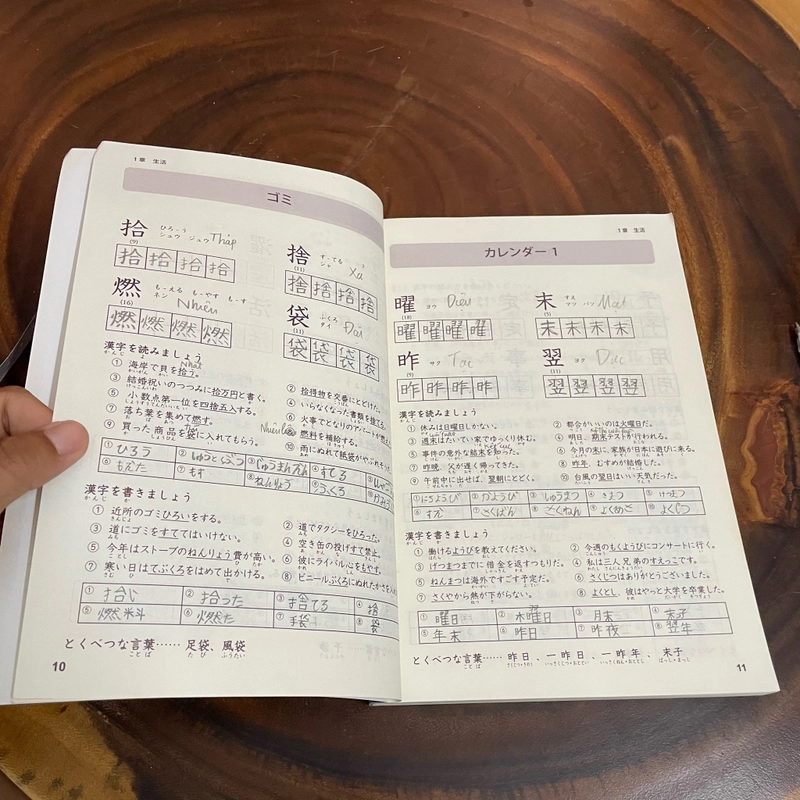 1章 生活
ゴミ
拾 ひろ-う シュウ ジュウ Thập
(9)
拾 拾 拾 拾
捨 す-てる シャ Xả
(11)
捨 捨 捨 捨
燃 も-える も-やす も-す ネン Nhiên
(16)
燃 燃 燃 燃
袋 ふくろ タイ Đại
(11)
袋 袋 袋 袋
漢字を読みましょう
① 海岸で貝を拾う。
② 拾得物を交番にとどけた。
③ 結婚祝いのつつみに拾万円と書く。
④ いらなくなった書類を捨てる。
⑤ 小数点第一位を四捨五入する。
⑥ 火事でとなりのアパートが燃え
⑦ 落ち葉を集めて燃す。
⑧ 燃料を補給する。
⑨ 買った商品を袋に入れてもらう。
⑩ 雨にぬれて紙袋がやぶれ
① ひろう ② しゅうとくぶつ ③ じゅうまんえん ④ すてる
⑥ もえた ⑦ もす ⑧ ねんりょう ⑨ ふくろ
漢字を書きましょう
① 近所のゴミひろいをする。
② 道でタクシーをひろった。
③ 道にゴミをすててはいけない。
④ 空き缶の投げすて禁止。
⑤ 今年はストーブのねんりょう費が高い。
⑥ 彼にライバル心をもやす。
⑦ 寒い日はてぶくろをはめて出かける。
⑧ ビニールぶくろにぬれたかさを入
① 拾い ② 拾った ③ 捨てる ④ 捨
⑤ 燃料 ⑥ 燃た ⑦ 手袋 ⑧ 袋
とくべつな言葉…… 足袋、風袋
10
1章 生活
カレンダー 1
曜 ヨウ Diệu
(18)
曜 曜 曜 曜
末 すえ マツ バツ Mạt
(5)
末 末 末 末
昨 サク Tạc
(9)
昨 昨 昨 昨
翌 ヨク Dực
(11)
翌 翌 翌 翌
漢字を読みましょう
① 休みは日曜日しかない。
② 都合がいいのは火曜日だ。
③ 週末はたいてい家でゆっくり休む。
④ 明日、期末テストが行われる。
⑤ 事件の意外な結末を知った。
⑥ 今月の末に、家族が日本に遊びに来る。
⑦ 昨晩、父が遅く帰ってきた。
⑧ 昨年、むすめが結婚した。
⑨ 午前中に出せば、翌朝にとどく。
⑩ 台風の翌日はいい天気だった。
① にちようび ② かようび ③ しゅうまつ ④ きまつ ⑤ けつまつ
⑥ すえ ⑦ さくばん ⑧ さくねん ⑨ よくあさ ⑩ よくじつ
漢字を書きましょう
① 働けるようびを教えてください。
② 今週のもくようびにコンサートに行く。
③ げつまつまでに借金を返すつもりだ。
④ 私は三人兄弟のすえっこです。
⑤ ねんまつは海外ですごす予定だ。
⑥ さくじつはありがとうございました。
⑦ さくやから熱が下がらない。
⑧ よくとし、彼はやっと大学を卒業した。
① 曜日 ② 木曜日 ③ 月末 ④ 末子
⑤ 年末 ⑥ 昨日 ⑦ 昨夜 ⑧ 翌年
とくべつな言葉…… 昨日、一昨日、一昨年、末子
11